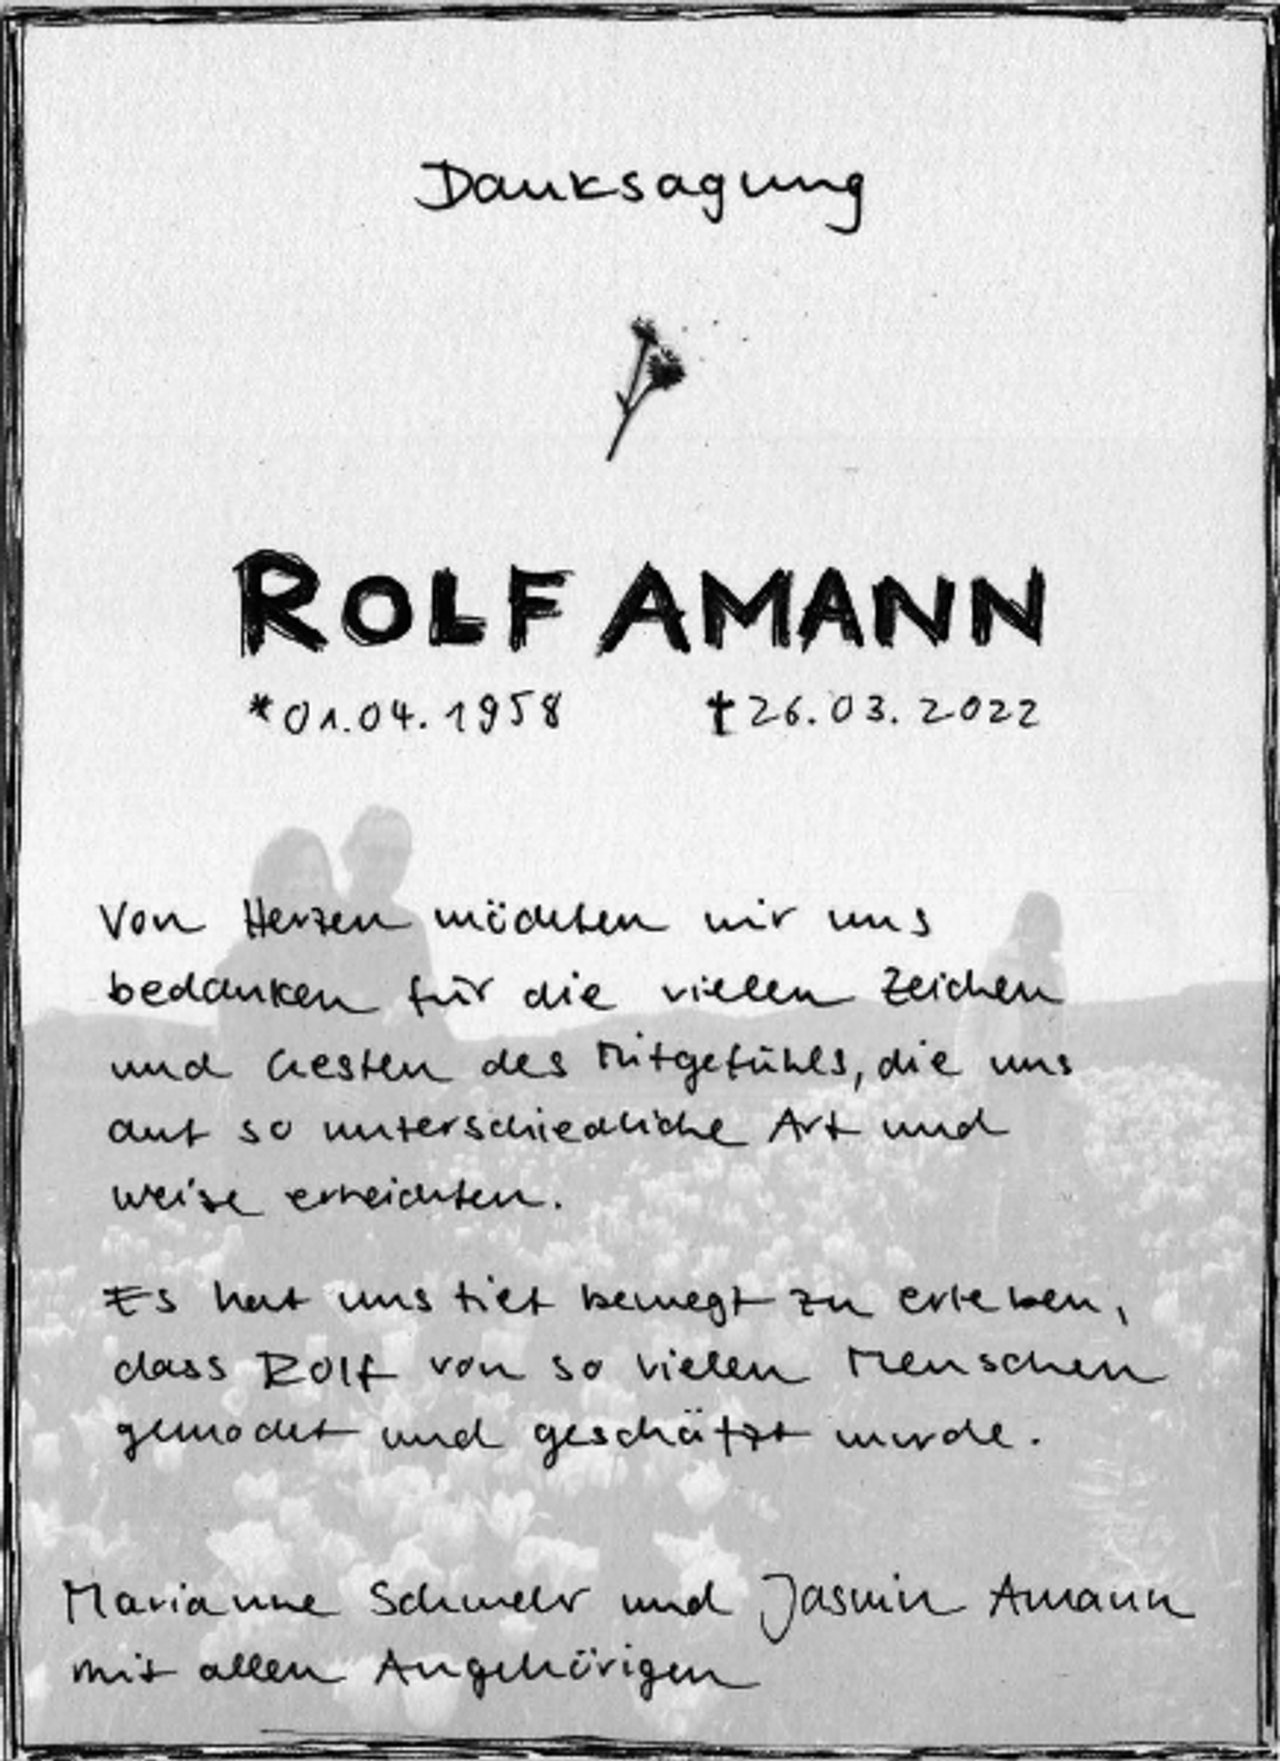 Danksagung
ROLF AMANN
*01.04.1958 †26.03.2022
Von Herzen möchten wir uns
bedanken für die vielen Zeichen
und Gesten des Mitgefühls, die uns
auf so unterschiedliche Art und
weise erreichten.
Es hat uns tief bewegt zu erleben,
dass Rolf von so vielen Menschen
gemocht und geschätzt wurde.
Marianne Schwehr und Jasmin Amann
mit allen Angehörigen